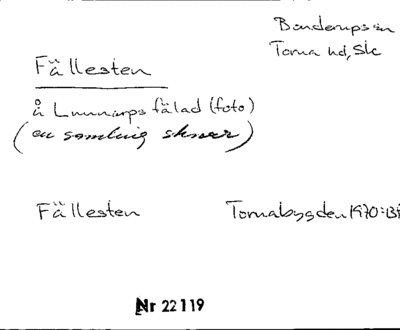 Bonderups sn
Torna hd, Sk
Fällesten
å Lunnarps fälad (foto)
(en samling stenar)
Fällesten Tornabygden 1970:
Nr 22119